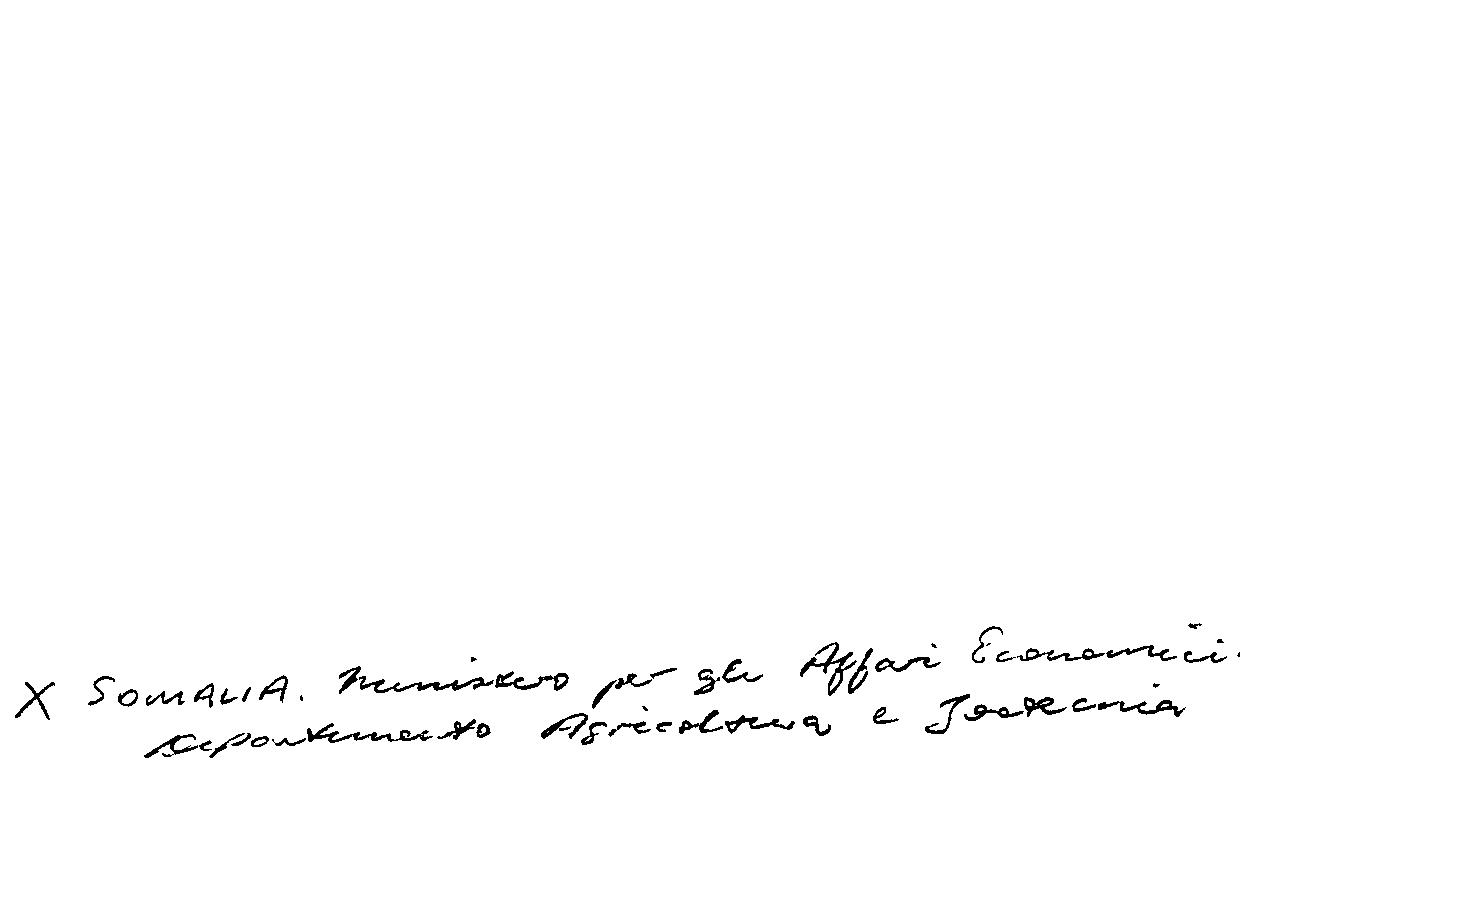 X SOMALIA. Ministero per gli Affari Economici.
Dipartimento Agricoltura e Zootecnia